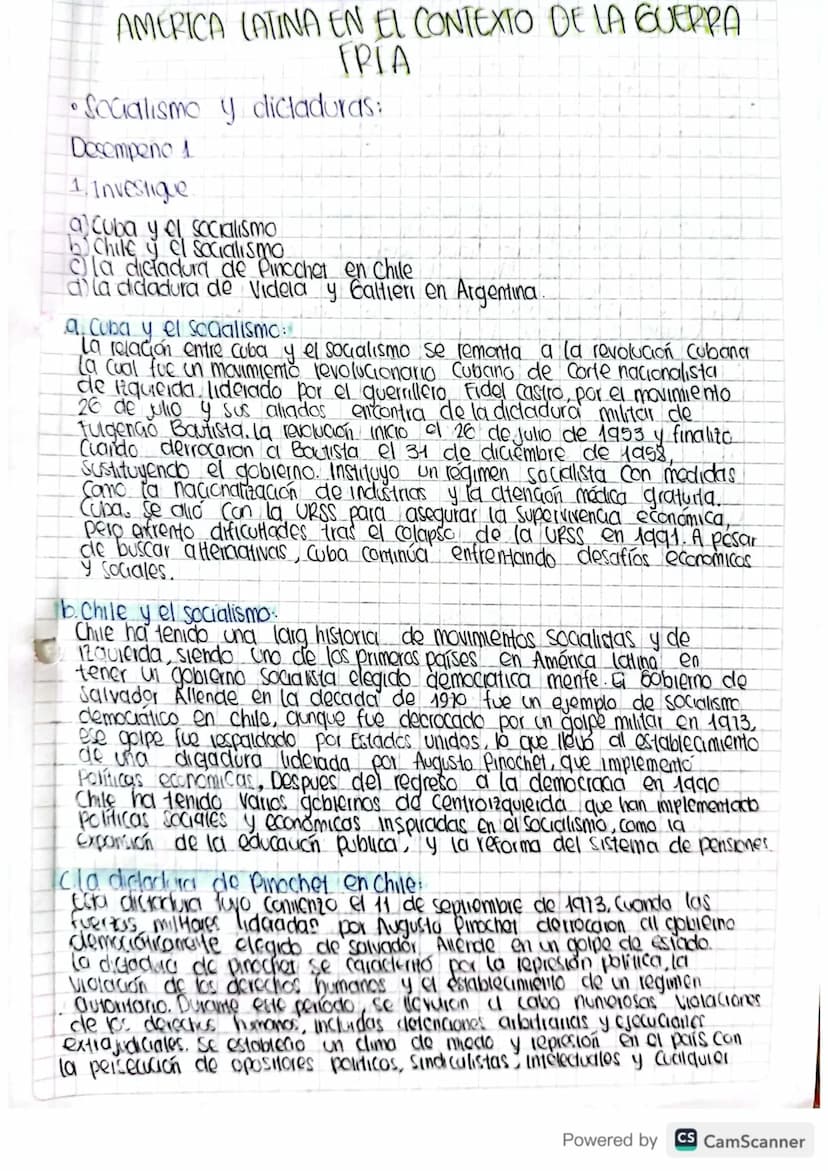 AMÉRICA LATINA EN EL CONTEXTO DE LA GUERRA
FRÍA
• Socialismo y dictaduras:
Desempeño 1
1. Investigue
a) Cuba y el socialismo
b) Chile y el socialismo
c) la dictadura de Pinochet en Chile
d) la dictadura de Videla y Galtieri en Argentina.
a. Cuba y el socialismo:
La relación entre Cuba y el socialismo se remonta a la revolución cubana
la cual fue un movimiento revolucionario Cubano de Corte nacionalista
de izquierda, liderado por el guerrillero, Fidel Castro, por el movimiento
26 de julio y sus aliados encontra de la dictadura militar de
Fulgencio Bautista. la revolución inicio el 26 de julio de 1953 y finalizo
Cuando derrocaron a Bautista el 31 de diciembre de 1958,
sustituyendo el gobierno. Instituyo un régimen socialista con medidas
como la nacionalización de industrias y la atención médica gratuita.
Cuba, se alió con la URSS para asegurar la supervivencia económica,
pero enfrento dificultades tras el colapso de la URSS en 1991. A pesar
de buscar alternativas, Cuba continúa enfrentando desafíos economicos
y sociales.
b. Chile y el socialismo:
Chile ha tenido una larg historia de movimientos socialistas y de
izquierda, siendo uno de los primeros países en América latina en
tener un gobierno socialista elegido democratica mente. El Gobierno de
Salvador Allende en la decada de 1970 fue un ejemplo de socialismo
democratico en chile, aunque fue derrocado por un golpe militar en 1973,
ese golpe fue respaldado por Estados unidos, lo que llevó al establecimiento
de una digadura liderada por Augusto Pinochet, que implementó
Políticas economicas, Despues del regreso a la democracia en 1990
Chile ha tenido varios gobiernos de centroizquierda que han implementado
políticas sociales y económicas inspiradas en el socialismo, como la
Expansión de la educación publica, y la reforma del sistema de pensiones.
c. la dictadura de Pinochet en Chile:
Esta dictadura tuvo comienzo el 11 de septiembre de 1973, Cuando las
fuerzas militares lideradas por Augusto Pinochet derrocaron al gobierno
democráticamente elegido de salvador Allende en un golpe de estado.
la dictadura de pinochet se caracterizó por la represión política, la
violación de los derechos humanos y el establecimiento de un regimen
autoritario. Durante este período, se llevaron a cabo numerosas violaciones
de los derechos humanos, incluidas detenciones arbitrarias y ejecuciones
extrajudiciales. Se estableció un clima de miedo y represión en el país con
la persecución de opositores políticos, Sindicalistas, intelectuales y cualquier
Powered by CS CamScanner